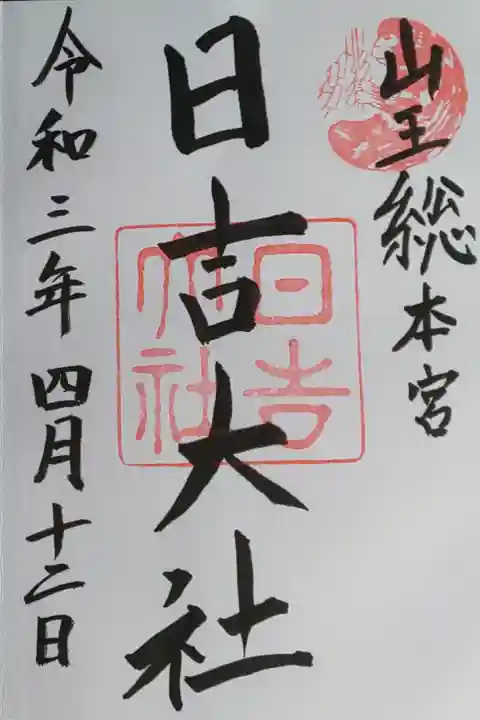 山王総本宮
日吉大社
日吉大社
令和三年四月十二日